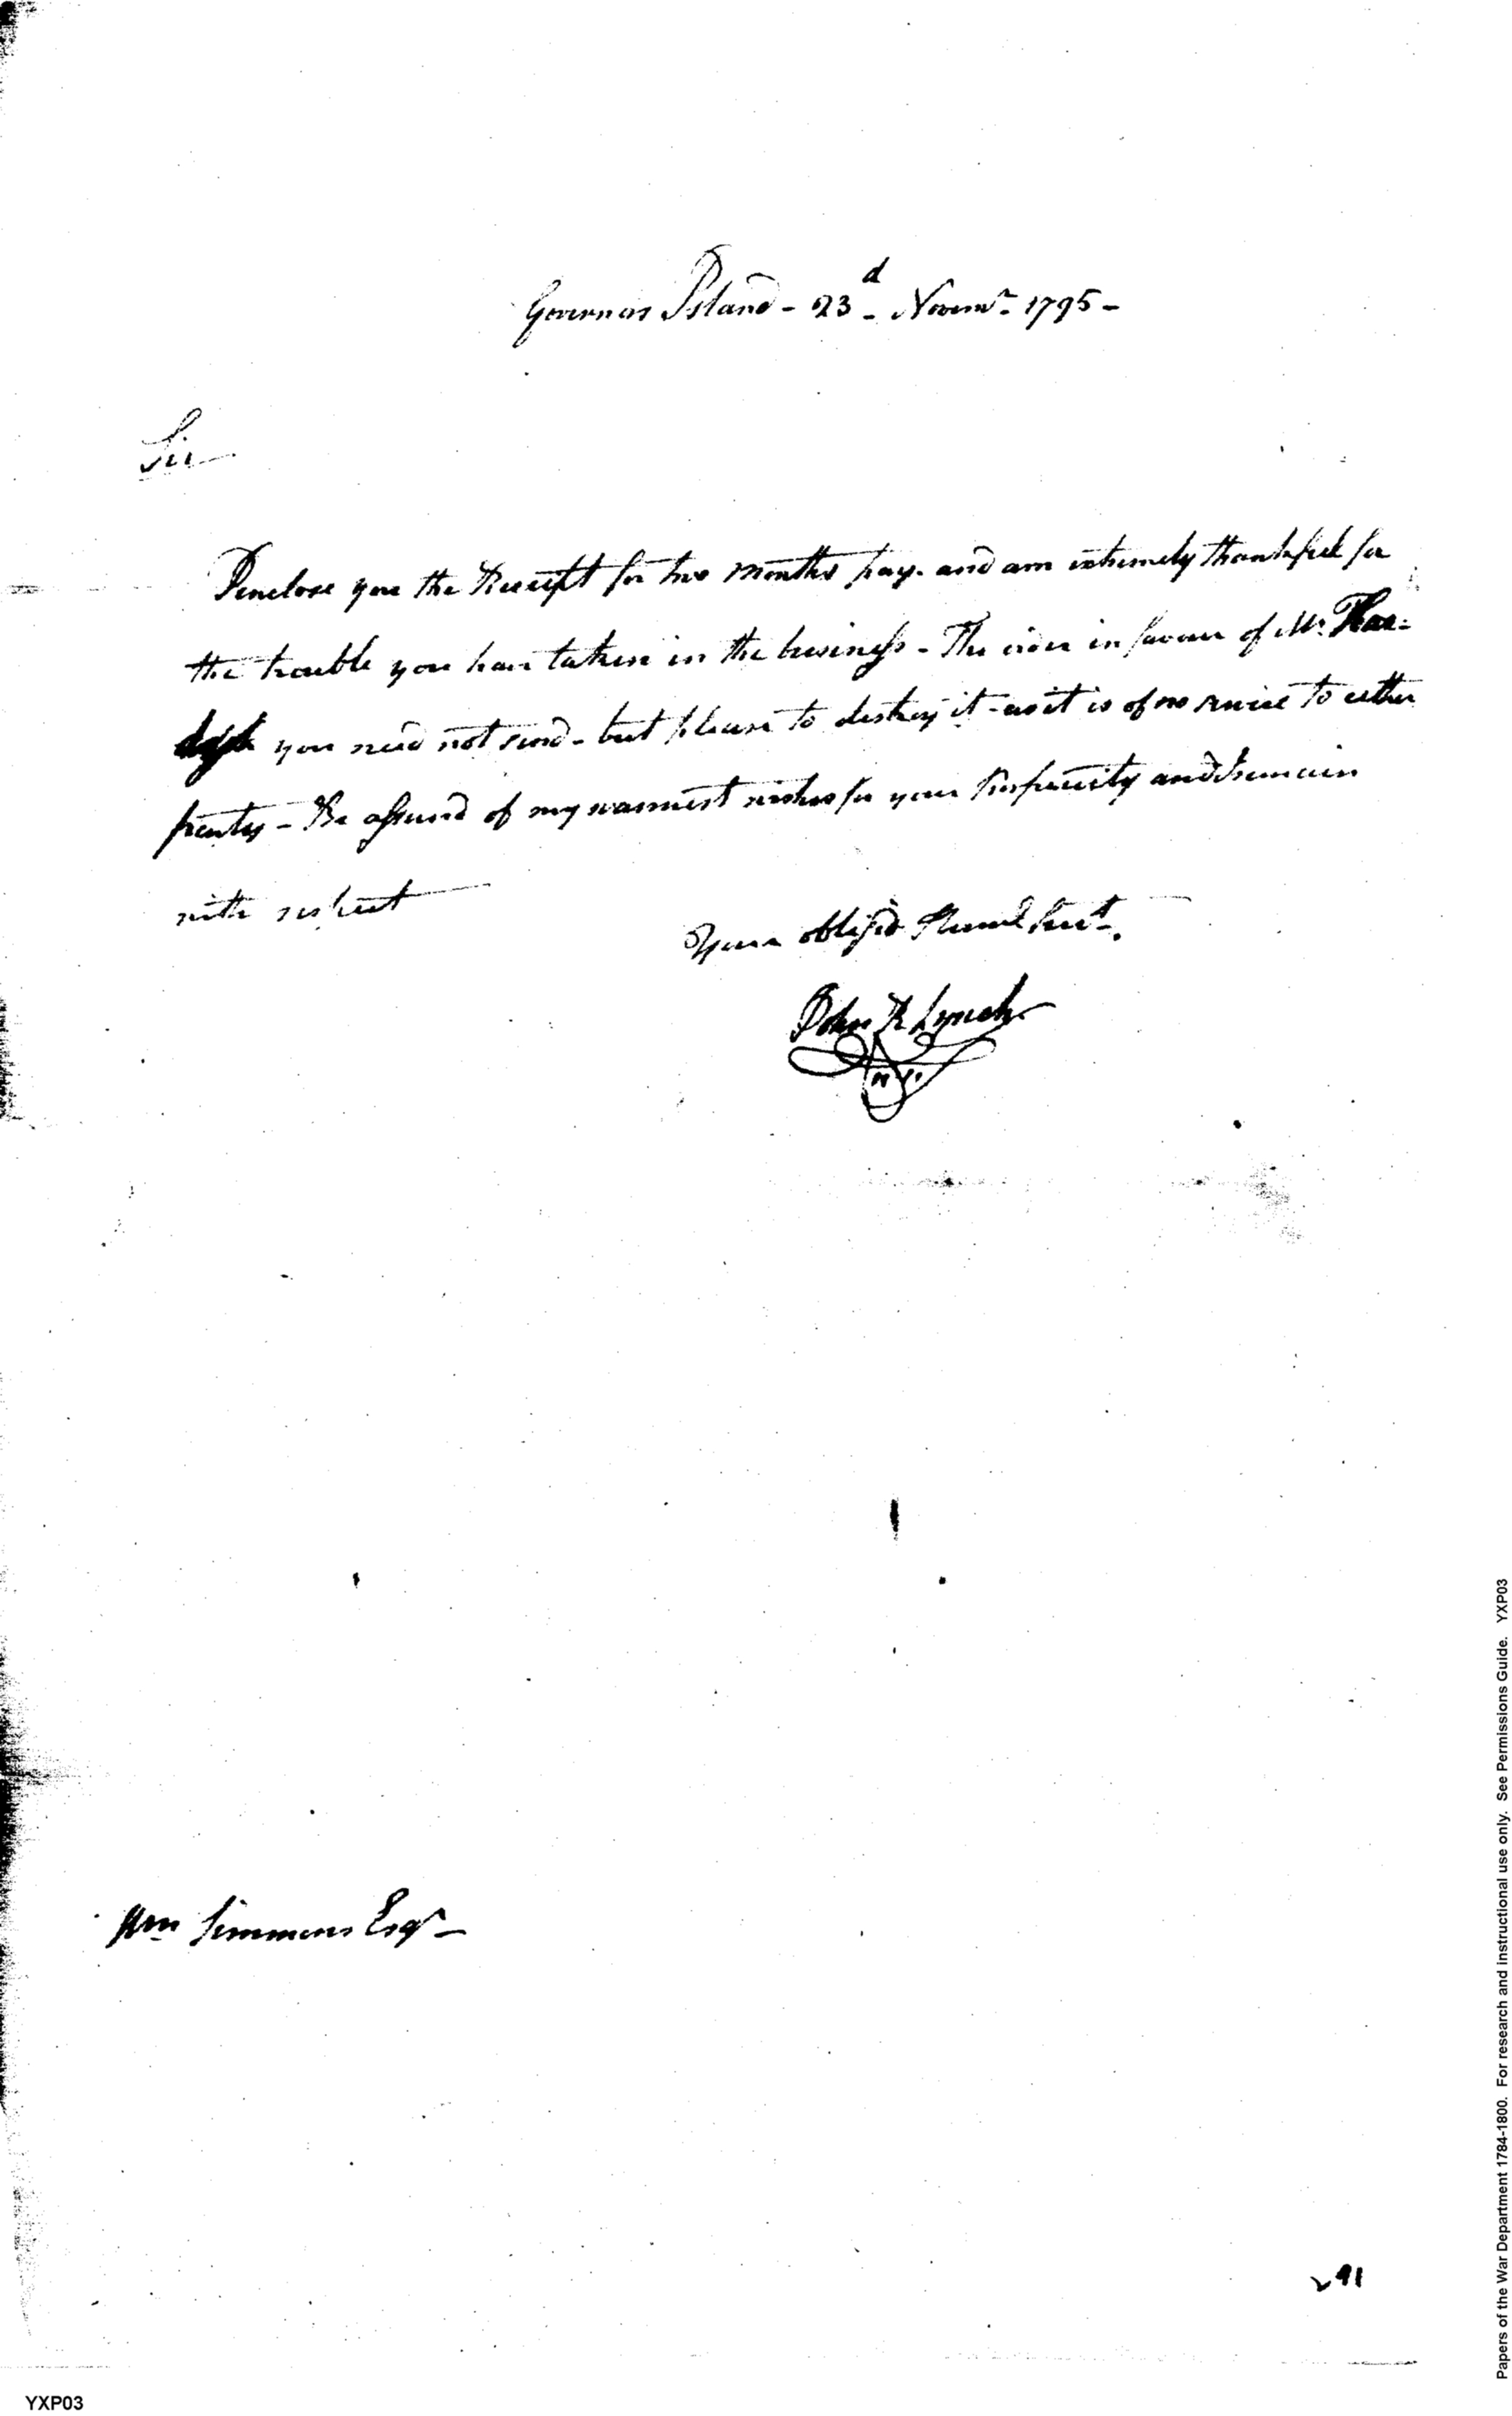 Governors Island - 23d Novemr 1795 -
Sir
I enclose you the Receipt for two Months pay. and am extremely thankful for
the trouble you have taken in the business - The order in favour of Mr.
you need not send - but please to destroy it - as it is of no service to either
party - Be assured of my warmest wishes for your Prosperity and I remain
with respect
Your oblig'd Huml Servt.
John R Lynch
Wm Simmons Esqr -
291
YXP03
Papers of the War Department 1784-1800. For research and instructional use only. See Permissions Guide. YXP03